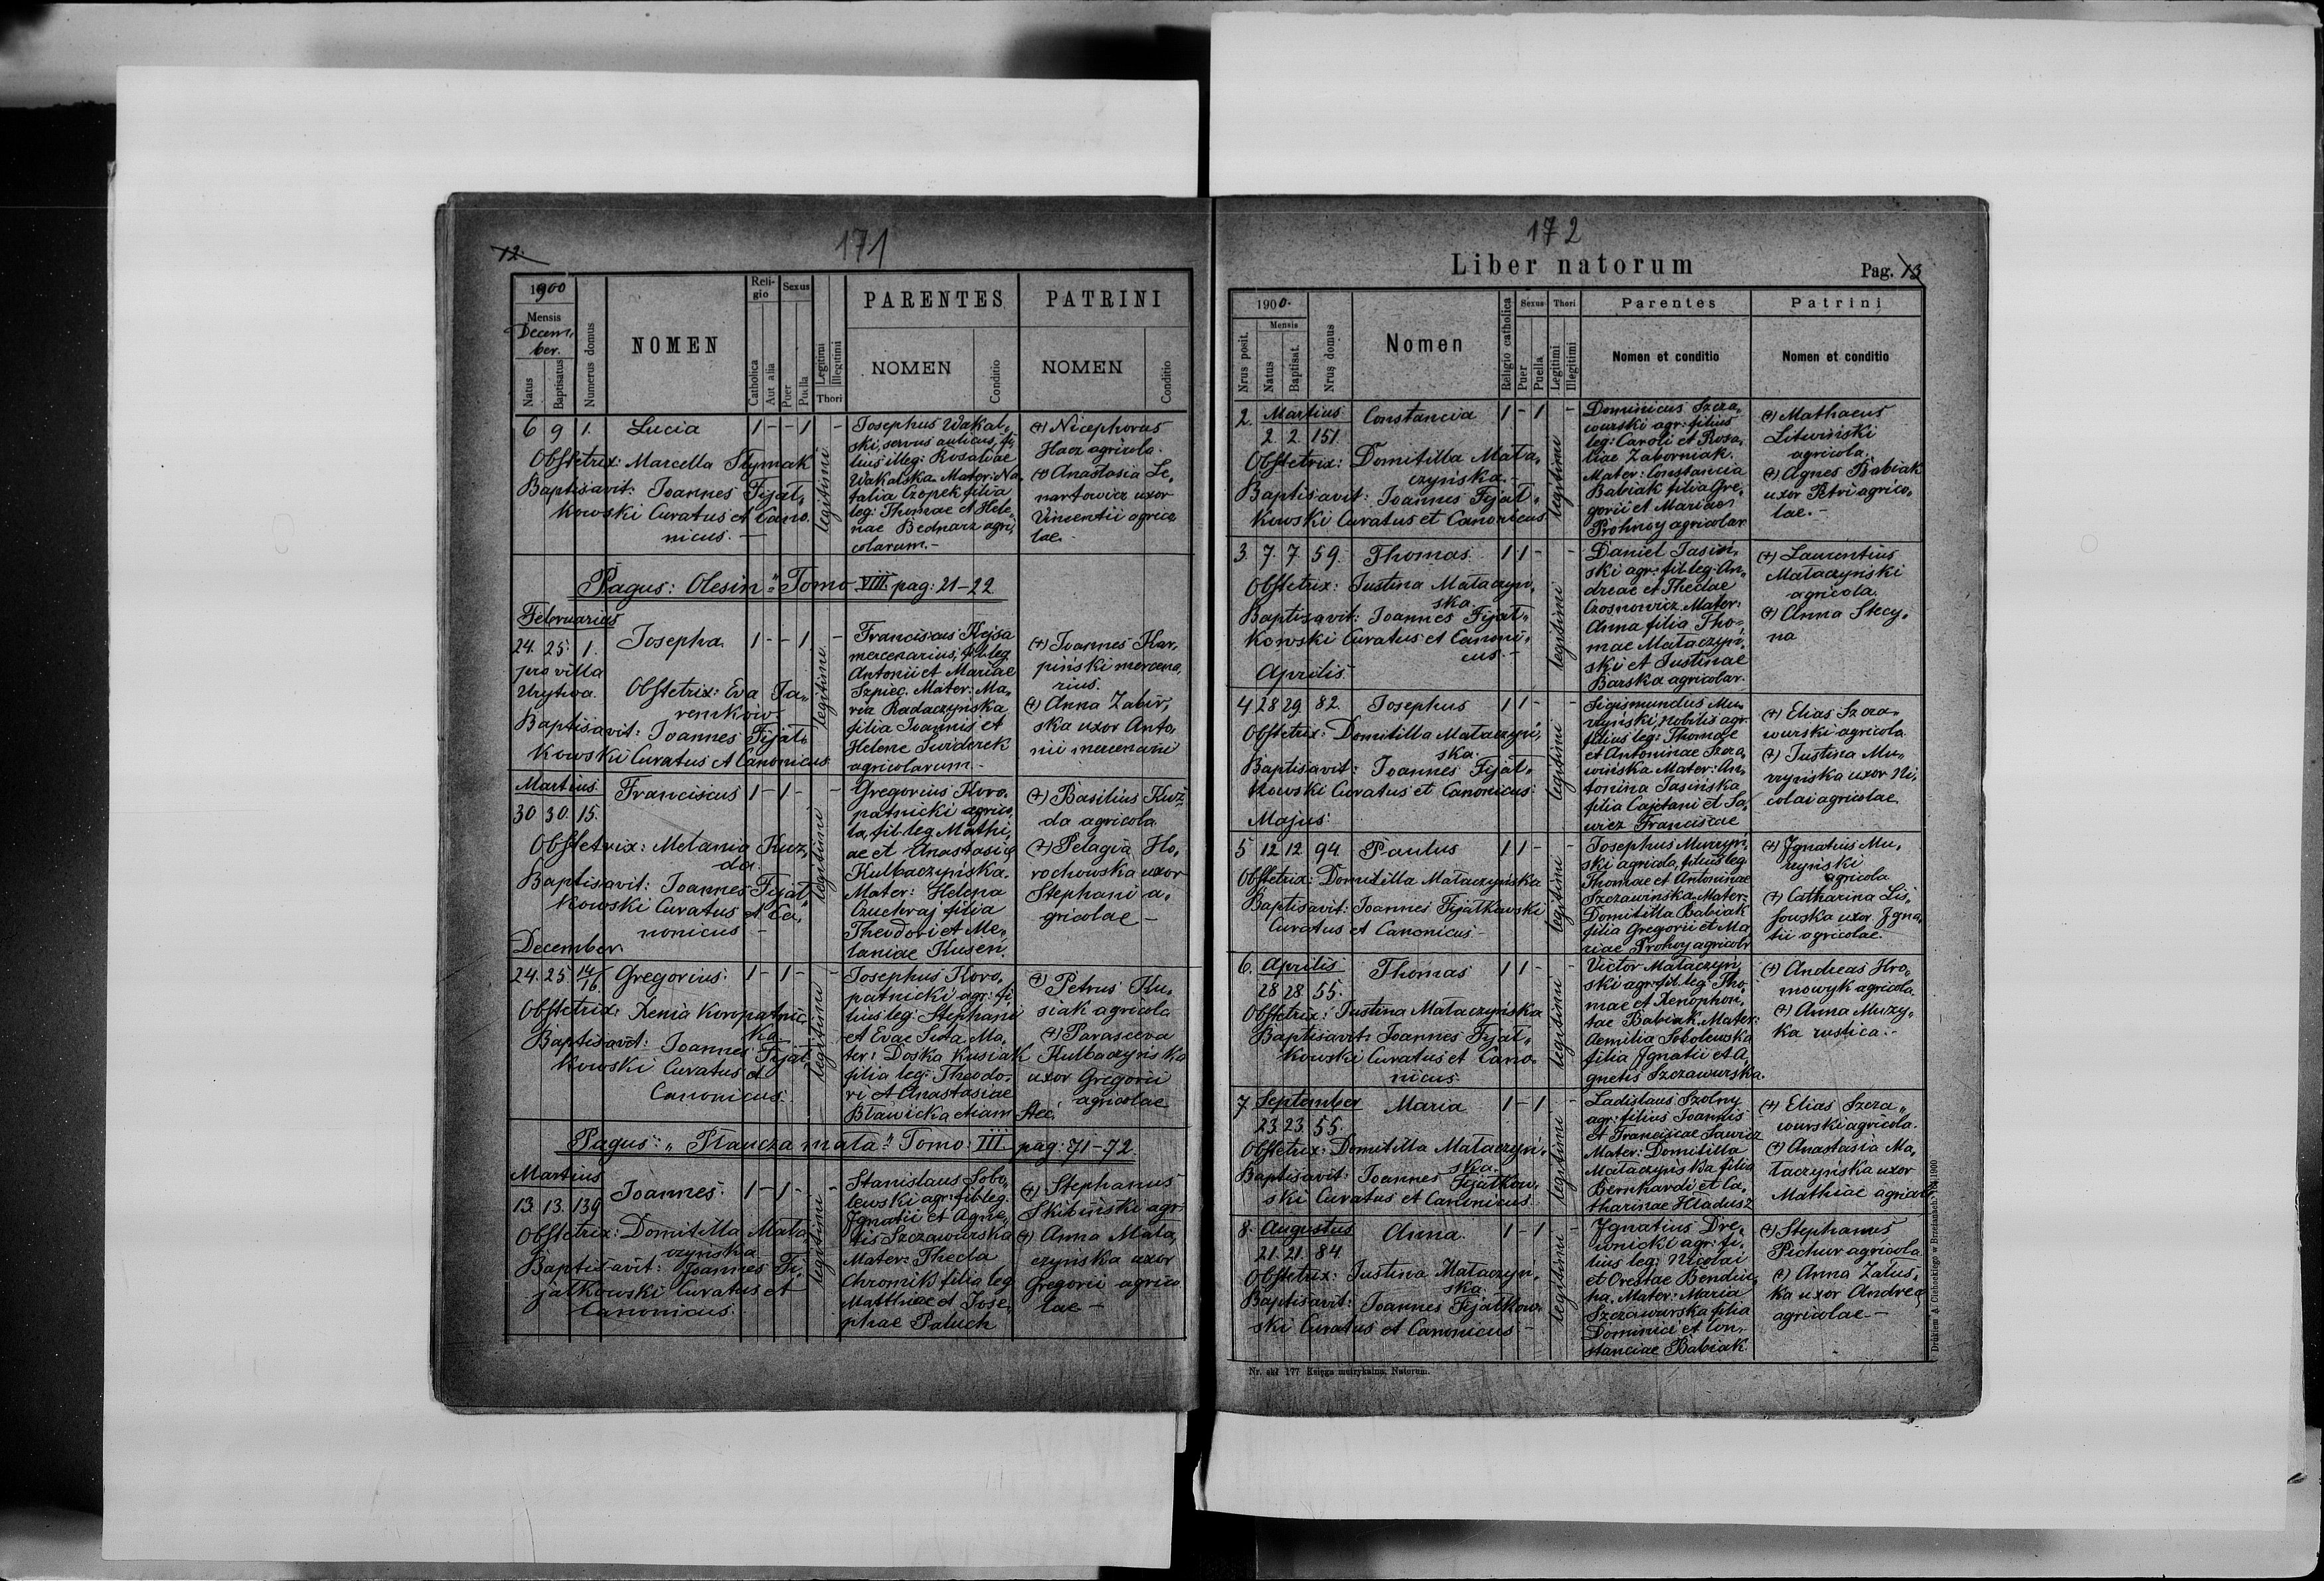 12
171
1900
Mensis
Decem„
ber.
Natus
Baptisatus
Numerus domus
NOMEN
Reli-
gio
Catholica
Aut alia
Sexus
Puer
Puella
Legitimi
Illegitimi
Thori
PARENTES
NOMEN
Conditio
PATRINI
NOMEN
Conditio
6 9 1. Lucia 1 - - 1 -
legitimi
Obstetrix: Marcella Stymak
Baptisavit: Joannes Fijał„
kowski Curatus et Cano„
nicus. —
Josephus Wakal„
ski, servus aulicus, fi„
lius illeg: Rosaliae
Wakalska. Mater: Na„
talia Czopek filia
leg: Thomae et Hele„
nae Bednarz agri„
colarum. -
(+) Nicephorus
Hacz agricola.
(+) Anastasia Le„
nartowicz uxor
Vincentii agrico
lae.
Pagus: Olesin" Tomo VIII. pag: 21-22
Februarius
24. 25. 1. Josepha. 1 - - 1 -
legitimi
pro villa
Urytwa.
Obstetrix: Eva Ja„
remków
Baptisavit: Joannes Fijał„
kowski Curatus et Canonicus.
Franciscus Klejsa
mercenarius, fil. leg
Antonii et Mariae
Szpiec. Mater: Ma„
ria Radaczyńska
filia Joannis et
Helene Swiderek
agricolarum. -
(+) Joannes Kar„
piński mercena„
rius.
(+) Anna Zabir„
ska uxor Anto„
nii mercenarii
Martius
30 30. 15. Franciscus 1 - 1 - -
legitimi
Obstetrix: Melania Kuz„
da
Baptisavit: Joannes Fijał„
kowski Curatus et Ca„
nonicus -
Gregorius Koro„
patnicki agrico„
la, fil. leg Mathi„
ae et Anastasia
Kulbaczyńska.
Mater: Helena
Czuchraj filia
Theodori et Me„
laniae Kusen.
(+) Basilius Kuź„
da agricola.
(+) Pelagia Ho„
rochowska uxor
Stephani a„
gricolae -
December
24. 25 14/16. Gregorius. 1 - 1 - -
legitimi
Obstetrix: Xenia Koropatnic„
ka
Baptisavit: Joannes Fijał„
kowski Curatus et
Canonicus.
Josephus Koro„
patnicki agr: fi„
lius leg: Stephani
et Evae Suta, Ma„
ter: Doska Kusiak
filia leg: Theodo„
ri et Anastasiae
Bławicka etiam Stec.
(+) Petrus Ku„
siak agricola
(+) Parasceva
Kulbaczyńska
uxor Gregorii
agricolae
Pagus: „Płaucza mała" Tomo: III. pag: 71-72.
Martius
13. 13. 139 Joannes. 1 - 1 - -
legitimi
Obstetrix: Domitilla Mata„
czyńska
Baptisavit: Joannes Fi„
jałkowski Curatus et
Canonicus.
Stanislaus Sobo„
lewski agr: fil. leg.
Ignatii et Agne„
tis Szczawurska
Mater: Thecla
Chromik filia leg
Matthiae et Jose„
phae Paluch
(+) Stephanus
Skibiński agr:
(+) Anna Mata„
czyńska uxor
Gregorii agrico
lae -
172
Liber natorum
Pag. 13
1900.
Nrus posit.
Mensis
Natus
Baptisat.
Nrus domus
Nomen
Religio catholica
Sexus
Puer
Puella
Thori
Legitimi
Illegitimi
Parentes
Nomen et conditio
Patrini
Nomen et conditio
2. Martius
2. 2. 151. Constancia 1 - 1 -
legitimi
Obstetrix: Domitilla Mata„
czyńska. -
Baptisavit: Joannes Fijał„
kowski Curatus et Canonicus
Dominicus Szcza„
wurski agr: filius
leg: Caroli et Rosa„
liae Zaborniak.
Mater: Constancia
Babiak filia Gre„
gorii et Mariae
Prohnoy agricolar.
(+) Mathaeus
Litwiński
agricola.
(+) Agnes Babiak
uxor Petri agrico„
lae. -
3. 7. 7. 59. Thomas. 1 1 - -
legitimi
Obstetrix: Justina Mataczyń„
ska.
Baptisavit: Joannes Fijał„
kowski Curatus et Canoni„
cus. -
Daniel Jasiń„
ski agr: fil. leg: An„
dreae et Theclae
Czosnowicz. Mater:
Anna filia Tho„
mae Mataczyń„
ski et Justinae
Barska agricolar.
(+) Laurentius
Mataczyński
agricola.
(+) Anna Stecy„
na
Aprilis.
4 28 29. 82. Josephus 1 1 - -
legitimi
Obstetrix: Domitilla Mataczyń„
ska.
Baptisavit: Joannes Fijał„
kowski Curatus et Canonicus.
Sigismundus Mu„
rzyński, nobilis agr.
filius leg: Thomae
et Antoninae Szcza„
wińska Mater: An„
tonina Jasińska
filia Cajetani et Sa„
wicz Franciscae
(+) Elias Szcza„
wurski agricola.
(+) Justina Mu„
rzyńska uxor Ni„
colai agricolae.
Majus.
5 12 12. 94. Paulus 1 1 - -
legitimi
Obstetrix: Domitilla Mataczyńska
Baptisavit: Joannes Fijałkowski
Curatus et Canonicus -
Josephus Murzyń„
ski agricola, filius leg
Thomae et Antoninae
Szczawińska. Mater:
Domitilla Babiak
filia Gregorii et Ma
riae Prohoy agricolr
(+) Ignatius Mu„
rzyński
agricola
(+) Catharina Lis„
sowska uxor Igna„
tii agricolae.
6. Aprilis
28 28. 55. Thomas 1 1 - -
legitimi
Obstetrix: Justina Mataczyńska
Baptisavit: Joannes Fijał„
kowski Curatus et Cano„
nicus.
Victor Mataczyń
ski agr: fil. leg. Tho„
mae et Xenophon„
tae Babiak. Mater:
Aemilia Sobolewska
filia Ignatii et A„
gnetis Szczawurska.
(+) Andreas Hro„
mowyk agricola.
(+) Anna Muzy„
ka rustica. -
7. September
23. 23. 55. Maria 1 - 1 -
legitimi
Obstetrix: Domitilla Mataczyń„
ska.
Baptisavit: Joannes Fijałkow„
ski Curatus et Canonicus.
Ladislaus Szolny
agr: filius Joannis
et Franciscae Sawicz
Mater: Domitilla
Mataczyńska filia
Bernhardi et Ca„
tharinae Hładusz
(+) Elias Szcza„
wurski agricola.
(+) Anastasia Ma„
taczyńska uxor
Mathiae agricol
8. Augustus
21. 21. 84 Anna. 1 - 1 -
legitimi
Obstetrix: Justina Mataczyń„
ska.
Baptisavit: Joannes Fijałkow„
ski Curatus et Canonicus -
Ignatius Dre„
wnicki agr: fi„
lius leg: Nicolai
et Orestae Bendiu„
ha. Mater: Maria
Szczawurska filia
Dominici et Con„
stanciae Babiak.
(+) Stephanus
Pichur agricola.
(+) Anna Załus„
ka uxor Andrea
agricolae -
Nr. skł 177 Księga metrykalna. Natorum.